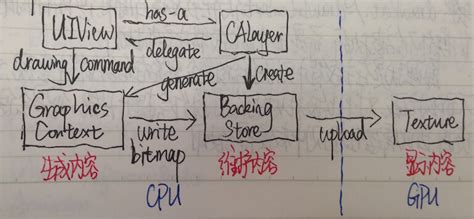 has-a
UIView
CALayer
delegate
drawing
command
generate
create
Graphics
Context
write
bitmap
Backing
Store
upload
Texture
生成内容
维护内容
显示内容
CPU
GPU